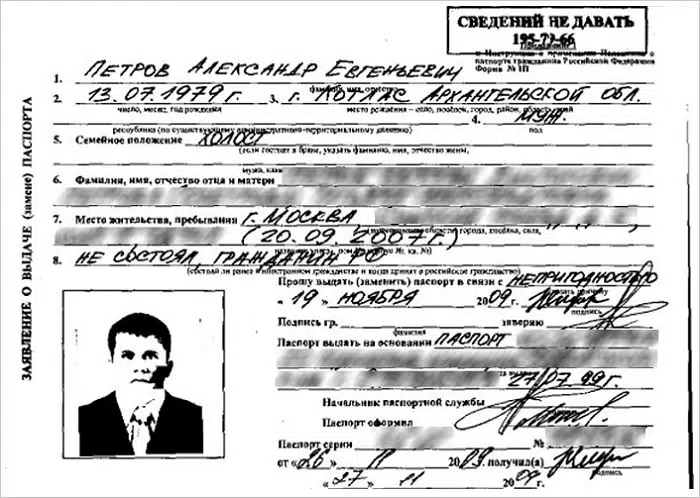 СВЕДЕНИЙ НЕ ДАВАТЬ
195-77-66
Приложение
к Инструкции о применении Положения о
паспорте гражданина Российской Федерации
Форма № 1П
ЗАЯВЛЕНИЕ О ВЫДАЧЕ (замене) ПАСПОРТА
1. ПЕТРОВ АЛЕКСАНДР ЕВГЕНЬЕВИЧ
фамилия, имя, отчество
2. 13.07.1979 г. 3. г. КОТЛАС АРХАНГЕЛЬСКОЙ ОБЛ.
число, месяц, год рождения место рождения – село, посёлок, город, район, область, край
4. МУЖ.
республика (по существующему административно-территориальному делению) пол
5. Семейное положение ХОЛОСТ
(если состоит в браке, указать фамилию, имя, отчество жены,
мужа, каким
6. Фамилия, имя, отчество отца и матери
7. Место жительства, пребывания г. МОСКВА
области города, посёлка, села,
(20.09.2007г.)
№. кв. №)
8. НЕ СОСТОЯЛ, ГРАЖДАНИН РФ
(состоял ли ранее в иностранном гражданстве и когда принят в российское гражданство)
Прошу выдать (заменить) паспорт в связи с НЕПРИГОДНОСТЬЮ
указать причину
« 19 » НОЯБРЯ 2009г.
подпись
Подпись гр. заверяю
фамилия подпись
Паспорт выдать на основании ПАСПОРТ
27.07.99г.
Начальник паспортной службы
Паспорт оформил
Паспорт серии №
от «26» 11 2009. получил(а)
подпись
«27» 11 2009г.